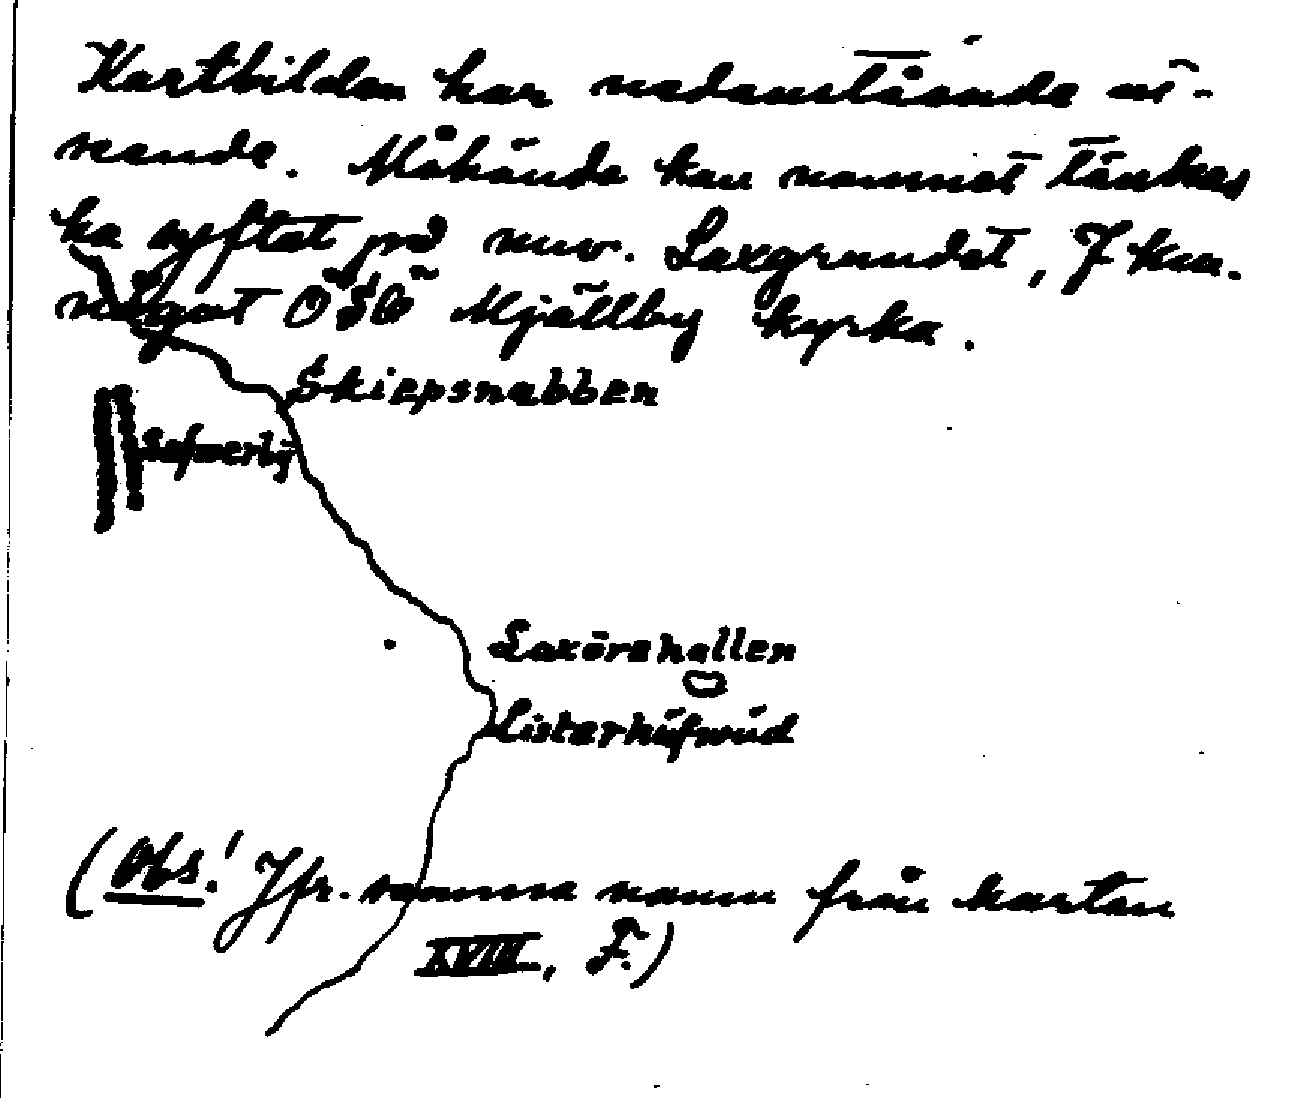 Kartbilden har nedanstående ut-
seende. Måhända kan namnet tänkas
ha syftat på nuv. Laxgrundet, 7 km.
något OSO Mjällby kyrka.
Skiepsnabben
Laxörehallen
Listerhüfwüd
(Obs! Jfr. samma namn från kartan
XVIII, F.)